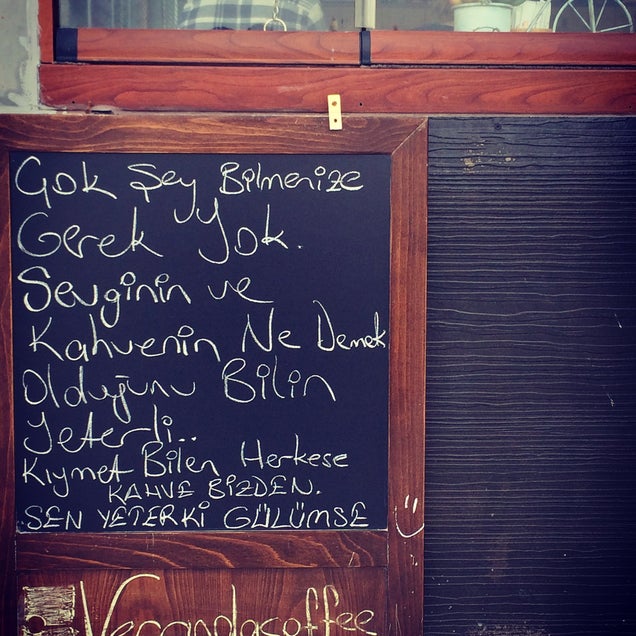 Çok Şey Bilmenize
Gerek Yok.
Sevginin ve
Kahvenin Ne Demek
Olduğunu Bilin
Yeterli..
Kıymet Bilen Herkese
KAHVE BİZDEN.
SEN YETERKİ GÜLÜMSE
Verandacoffee